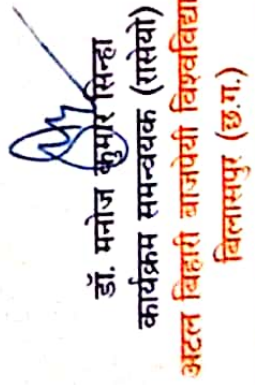 डॉ. मनोज कुमार सिन्हा
कार्यक्रम समन्वयक (रासेयो)
अटल बिहारी वाजपेयी
बिलासपुर (छ.ग.)